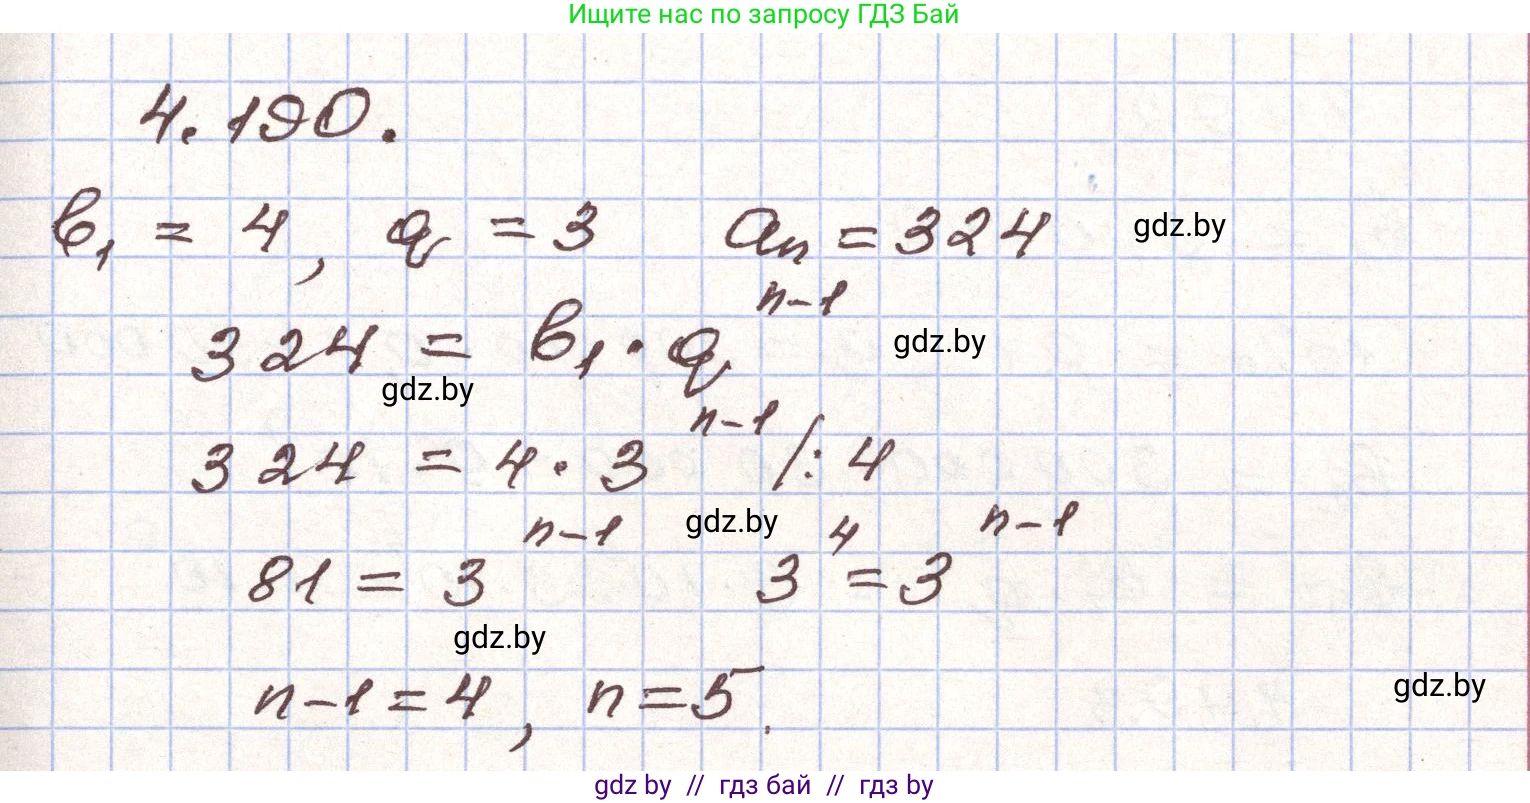 Ищите нас по запросу ГДЗ Бай
4.190.
b₁ = 4, q = 3 aₙ = 324 gdz.by
324 = b₁ · qⁿ⁻¹ gdz.by
gdz.by
324 = 4 · 3ⁿ⁻¹ /: 4
gdz.by
81 = 3ⁿ⁻¹ 3⁴ = 3ⁿ⁻¹
gdz.by
n-1 = 4, n = 5. gdz.by
gdz.by // гдз бай // гдз by